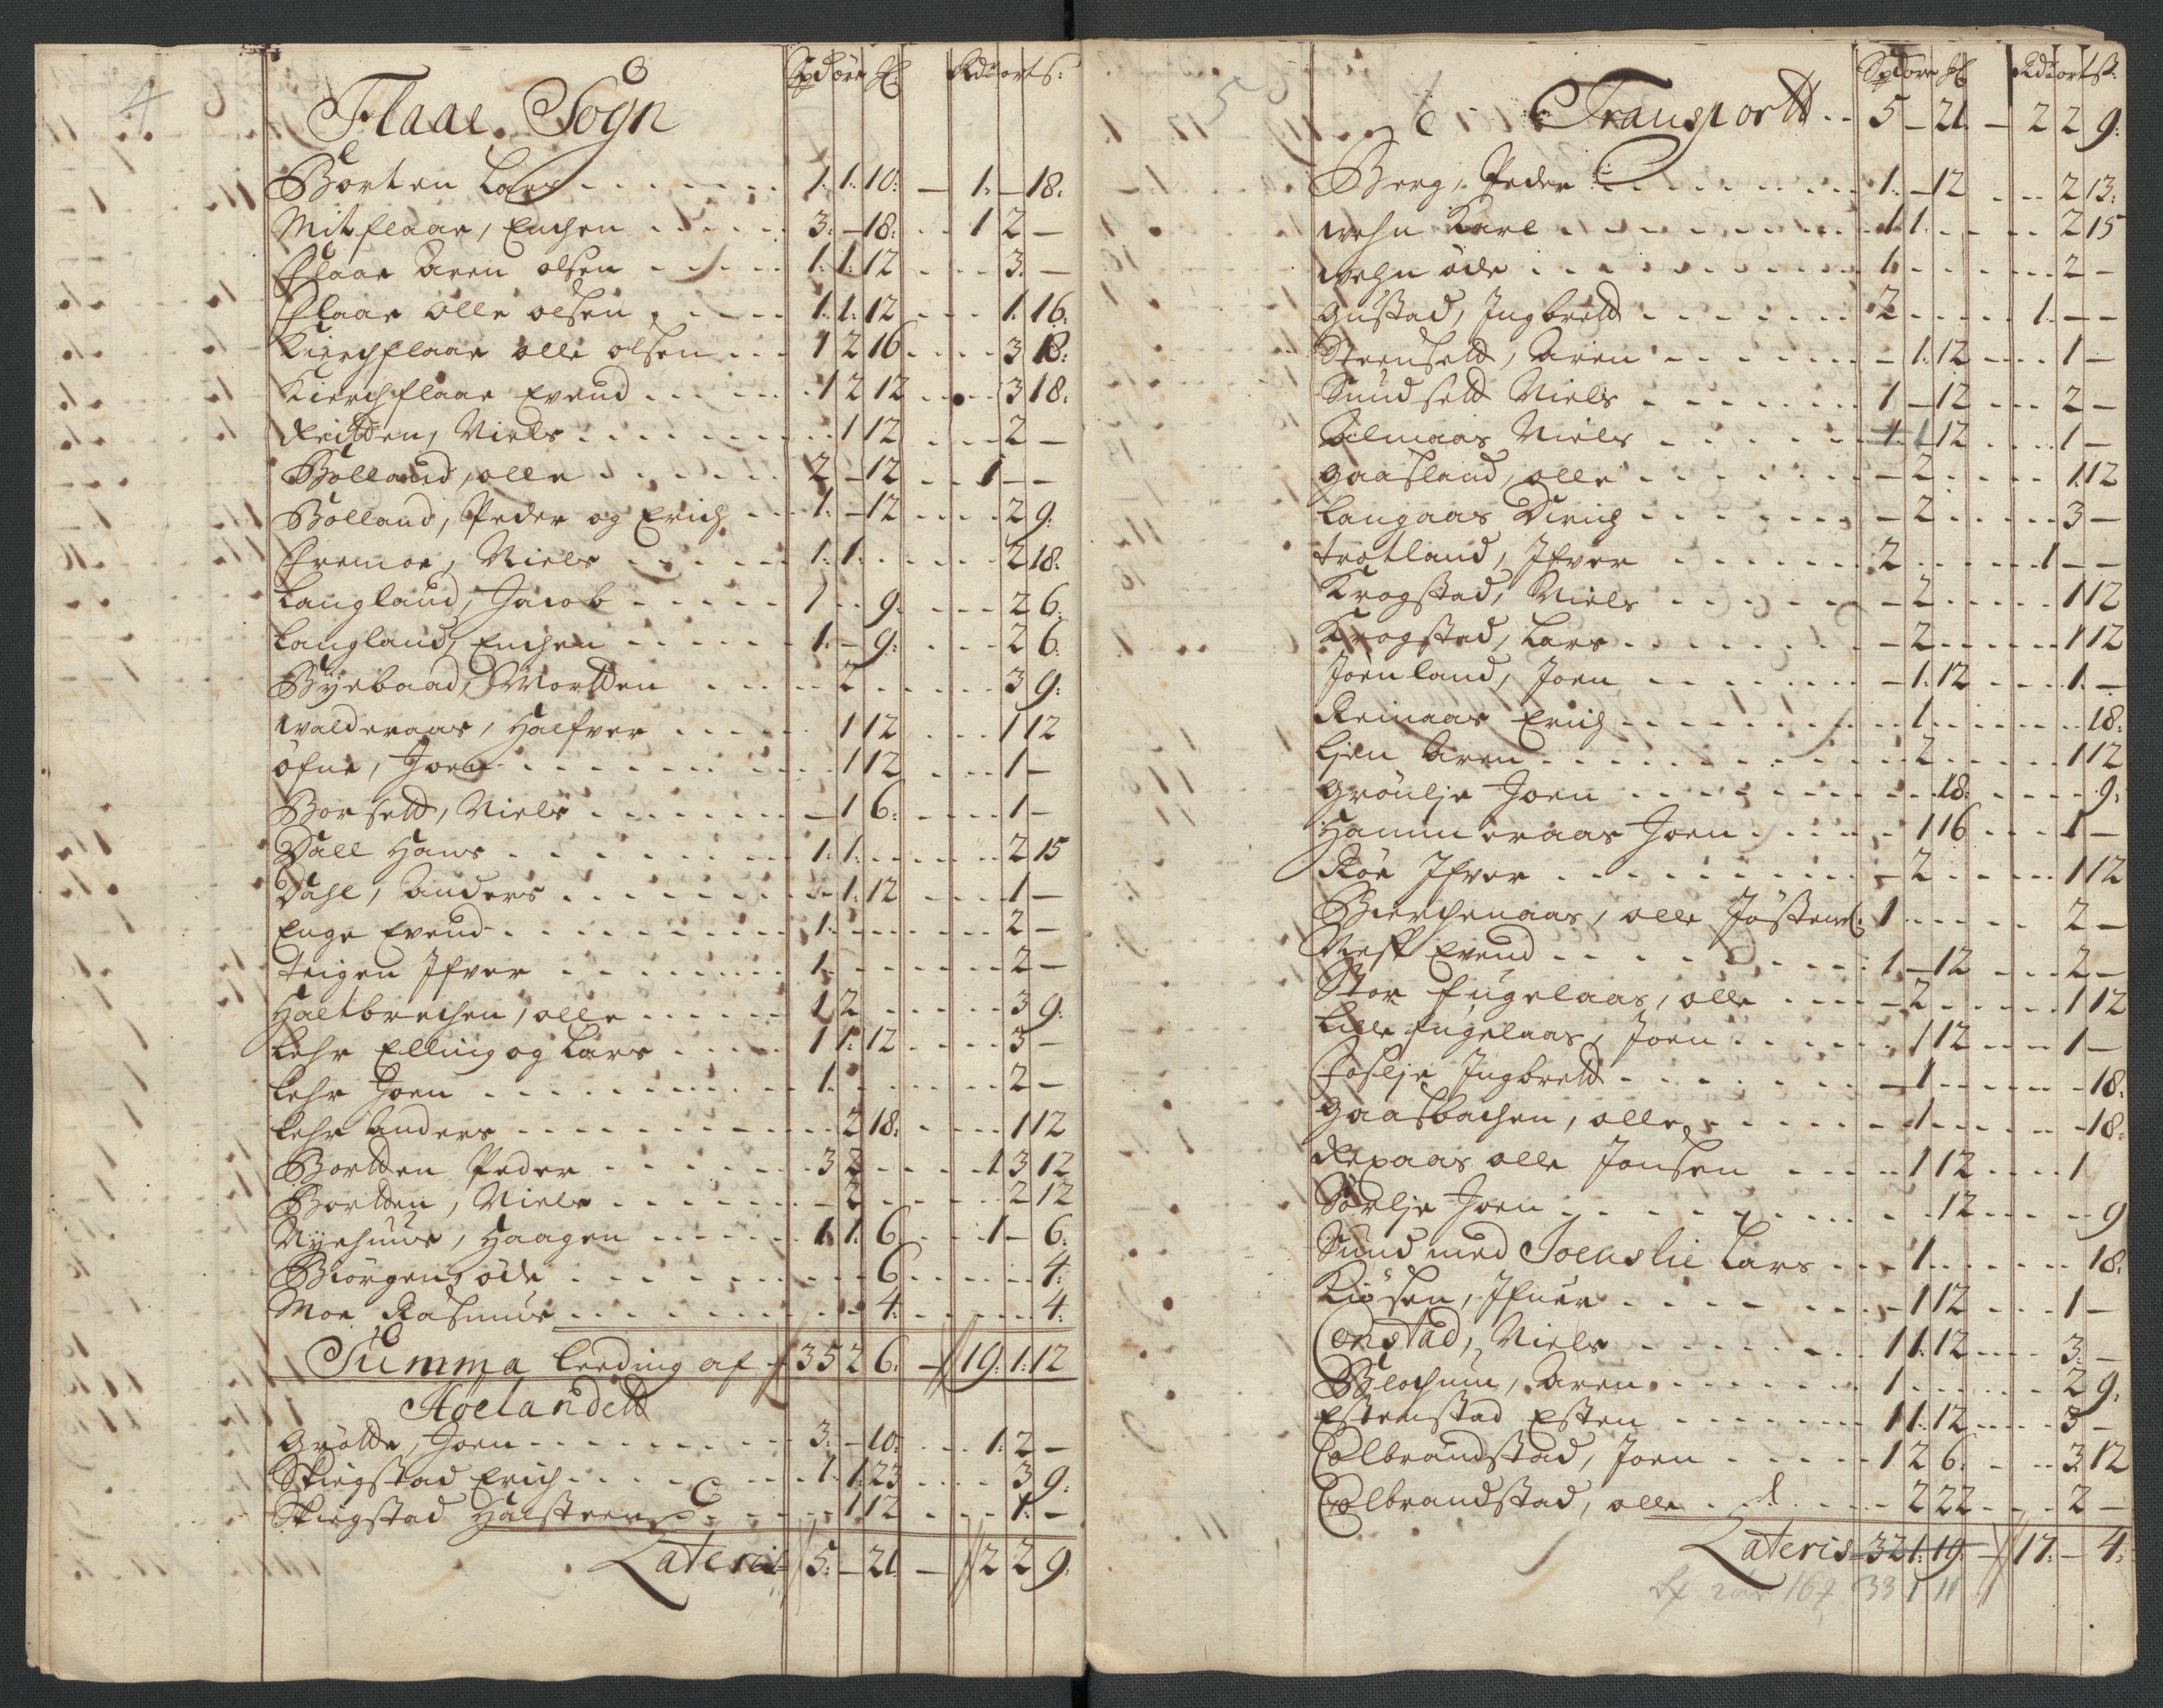 4
Spd öre Rd ort s:
Flaae Sogn
Borten Lars 1: 1: 10: 1: – 18:
Mitflaae, Enchen 3: – 18: 1 2 –
Flaae Aren olsen 1: 1: 12 3: –
Flaae olle olsen 1: 1: 12 1: 16:
Kierchflaae olle olsen 1 2 16 3 18:
Kierchflaae Evend 1 2 12 3 18:
Reitten, Niels 1 12 2 –
Bolland, olle 2 – 12 1 – –
Bolland, Peder og Erich 1: – 12 2 9:
Fremoe, Niels 1: 1: 2 18:
Langland, Jacob 1 9: 2 6:
Langland, Enchen 1: – 9: 2 6:
Byebaad, Mortten 2 3 9:
walderaas, Halfver 1 12 1 12
öfne, Joen 1 12 1 –
Borsett, Niels – 1 6: 1 –
Dall Hans 1: 1: 2 15
Dahl, Anders 1: 12 1 –
Enge Evend 1: 2 –
teigen Ifver 1 2 –
Haltbrechen, olle 1 2 3 9:
Lehr Elling og Lars 1 1: 12 3 –
Lehr Joen 1: 2 –
Lehr Anders 2 18: 1 12
Bortten Peder 3 2 1 3 12
Bortten, Niels – 2 2 12
Nyehuus, Haagen 1 1: 6 1 – 6:
Biörgen öde 6 4:
Moe Rasmus 4: 4:
Summa Leeding af 35 2 6: 19: 1: 12
Höelandett
Grötte, Joen 3: – 10: 1: 2 –
Skiegstad Erich 1: 1: 23 3 9:
Skiegstad Halsteen 1 12 1: –
Lateris 5: – 21: – 2 2 9:
5
Spd öre Rd ort s:
Transportt 5 – 21 – 2 2 9:
Berg, Peder 1: – 12 2 13:
wehn Karl 1 1: 2 15
wehn öde 1: 2 –
Gustad, Ingbrett 2 1: – –
Steensett, Aren – 1: 12 1 –
Sundsett Niels 1 – 12 2 –
Almaas Niels 1 12 1 –
Gaasland, olle – 2 1 12
Langaas Dirich – 2 3 –
trotland, Ifver 2 1 – –
Krogstad, Niels – 2 1 12
Krogstad, Lars – 2 1 12
Joenland, Joen – 1: 12 1: –
Reinaas Erich 1 18:
Lien Aren 2 1 12
Grönlje Joen 18: 9:
Hammeraas Joen 1 16 1 –
Röe Ifver – 2 1 12
Bierchenaas, olle Jöstens: 1 2 –
Evend 1 – 12 2 –
Stor fugelaas, olle – 2 1 12
Lille fugelaas, Joen 1 12 1 –
Foslje Ingbrett – 1 18:
Gaasbachen, olle 1 18:
Repaas olle Jonsen 1 12 1
Sörlje Joen 12 9
Sund med Joenslie Lars 1 18:
Kiösen, Ifver – 1 12 1 –
Constad, Niels 1 1: 12 3: –
Blochum, Aren 1 2 9:
Estenstad Esten 1 1: 12 3 –
Colbrandstad, Joen 1 2 6: 3 12
Colbrandstad, olle 2 22 2 –
Lateris 32 1: 19: – 17: – 4:
33 1 11